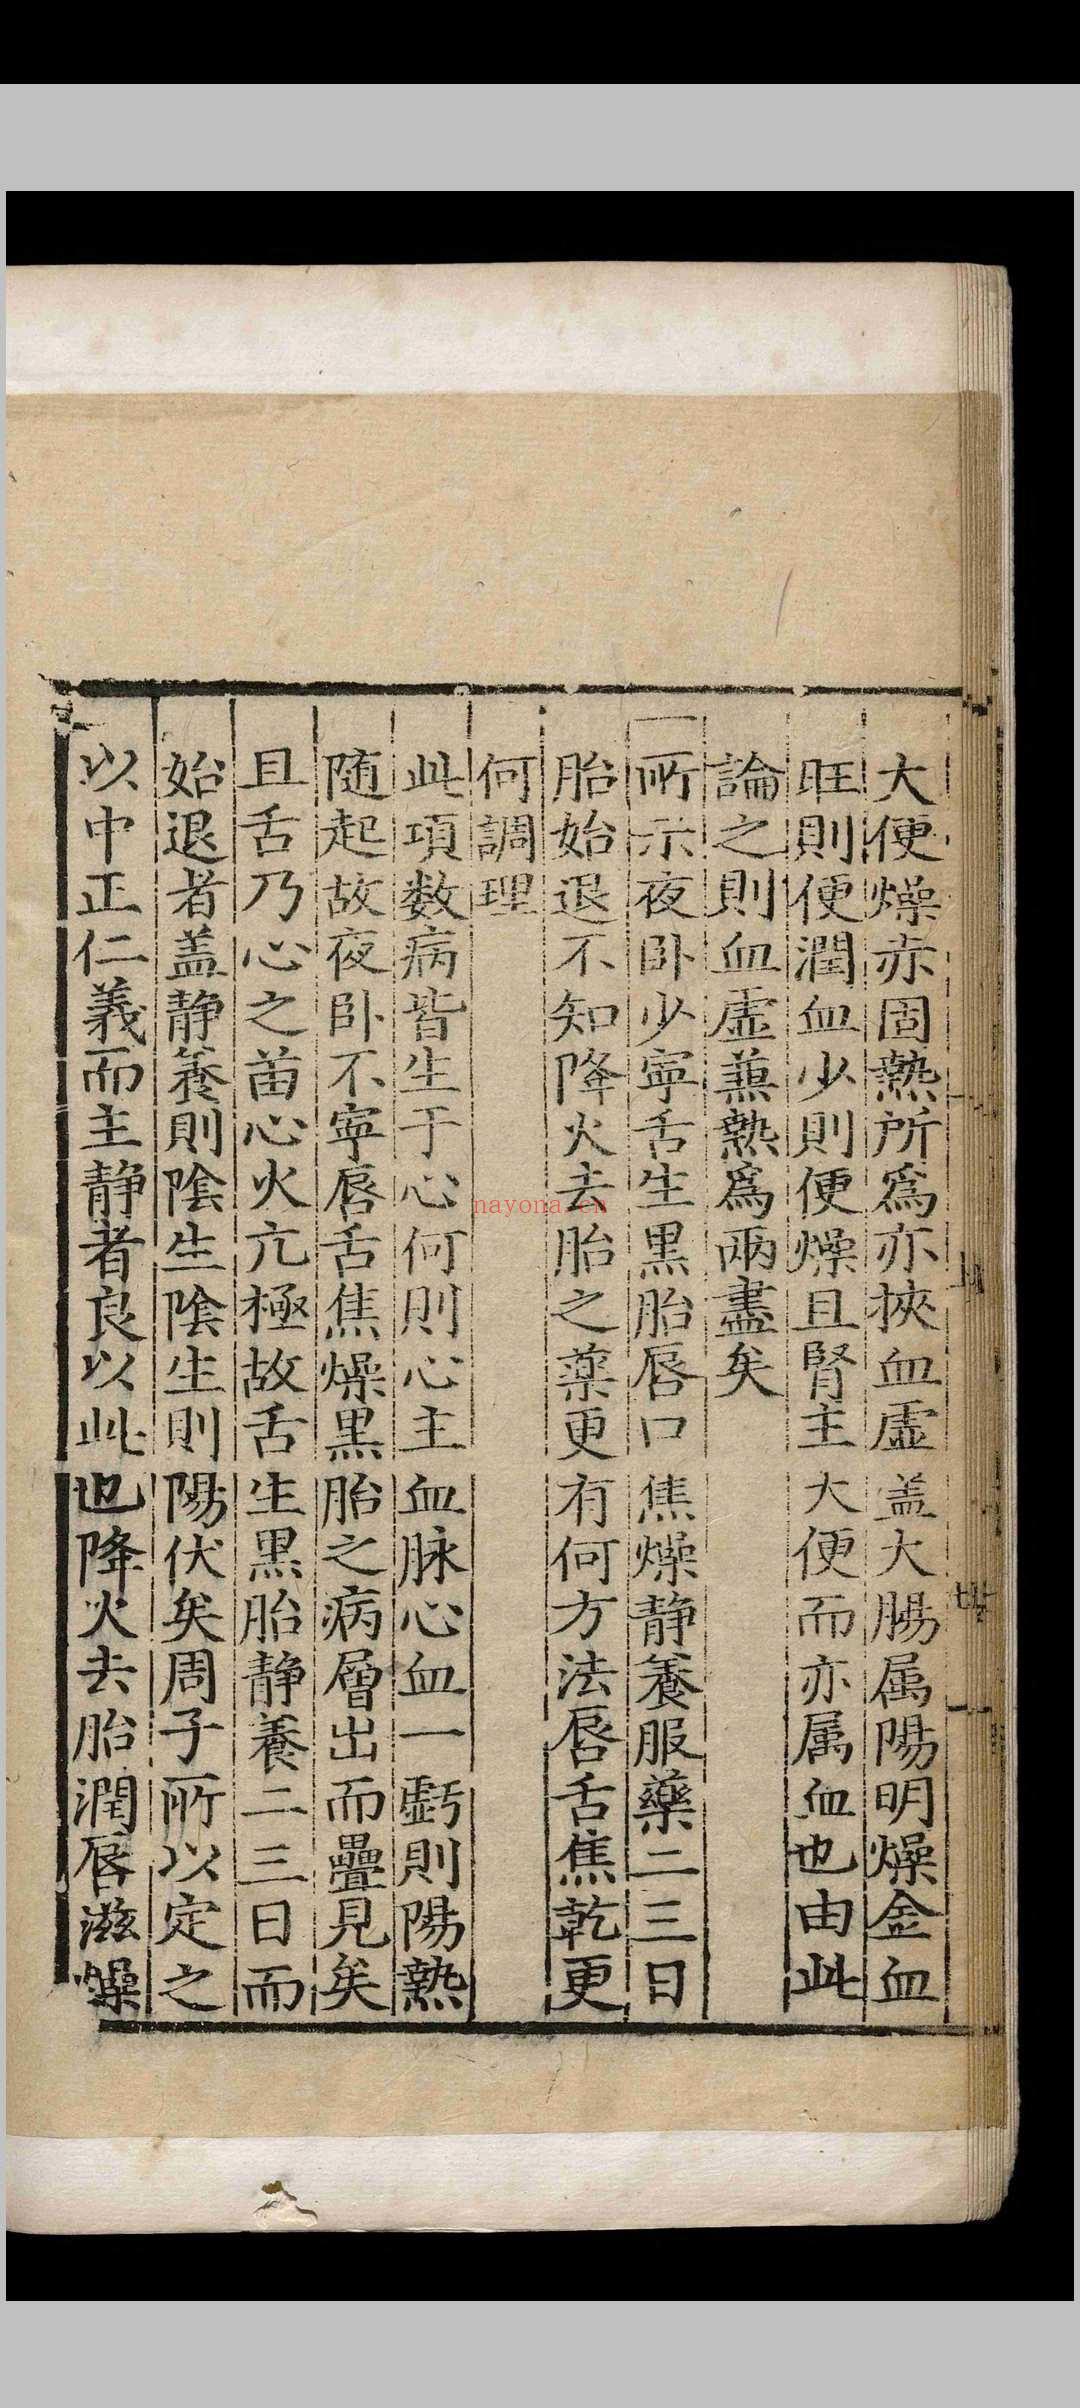 大便燥赤固熱所爲亦挾血虛盖大腸属陽明燥金血
旺則便潤血少則便燥且腎主大便而亦属血也由此
論之則血虛兼熱爲兩盡矣
一所示夜卧少寕舌生黒胎唇口焦燥静養服藥二三日
胎始退不知降火去胎之薬更有何方法唇舌焦乾更
何調理
此項数病皆生于心何則心主血脉心血一虧則陽熱
随起故夜卧不寕唇舌焦燥黒胎之病層出而疊見矣
且舌乃心之苗心火亢極故舌生黒胎静養二三日而
始退者盖静養則陰生陰生則陽伏矣周子所以定之
以中正仁義而主静者良以此也降火去胎潤唇滋燥
nayona.cn